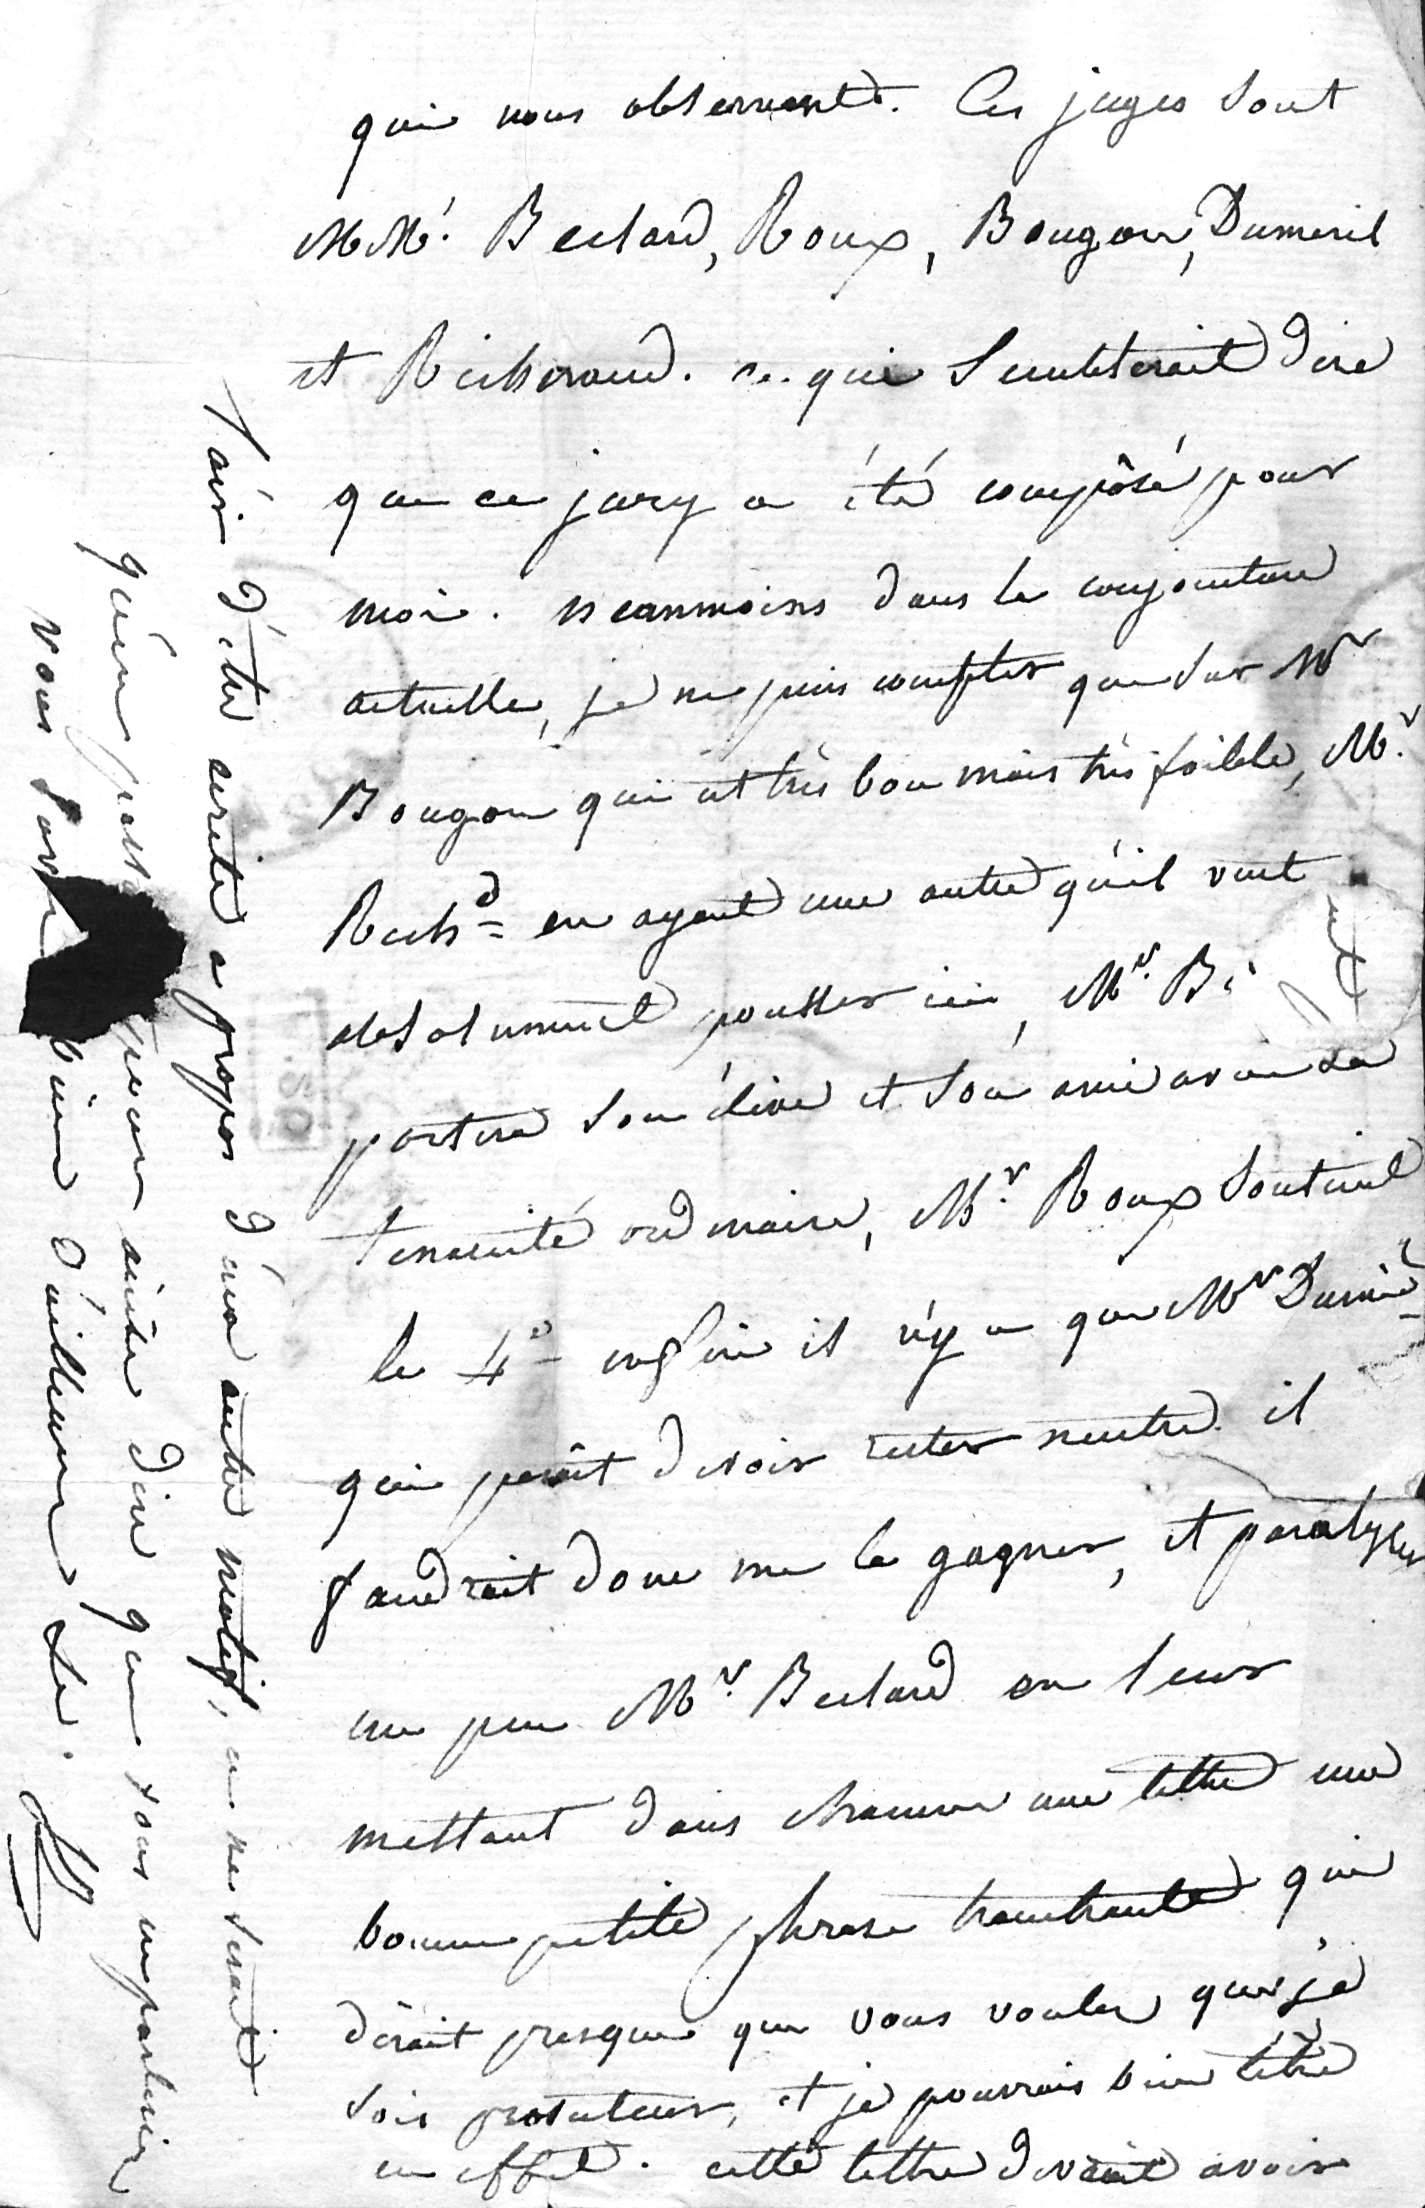 qui nous observent. Ces juges sont
MMrs. Beclard, Roux, Bougon, Dumeril
et Richerand. ce qui semblerait dire
que ce jury a été compôsé pour
moi. neanmoins dans la conjoncture
actuelle, je ne puis compter que sur Mr
Bougon qui est très bon mais très foible, Mr.
Richd= en ayant une autre qu'il veut
absolument pousser ici, Mr. Bé
portera son élève et son ami avec sa
tenacité ordinaire, Mr. Roux soutient
le 4e enfin il n'y a que Mr Dumé
qui parait devoir rester neutre. il
faudrait donc me le gagner, et paralyser
un peu Mr. Beclard en leur
mettant dans chacune une lettre une
bonne petite phrase tranchante qui
dirait presque que vous voulez que je
sois prosecteur, et je pourrais bien l'être
en effet. cette lettre devrait avoir
l'air d'être ecrite a propos d'un autre motif, ce ne serait
qu'en pass peur ainsi dire que vous
vous bien d'ailleurs